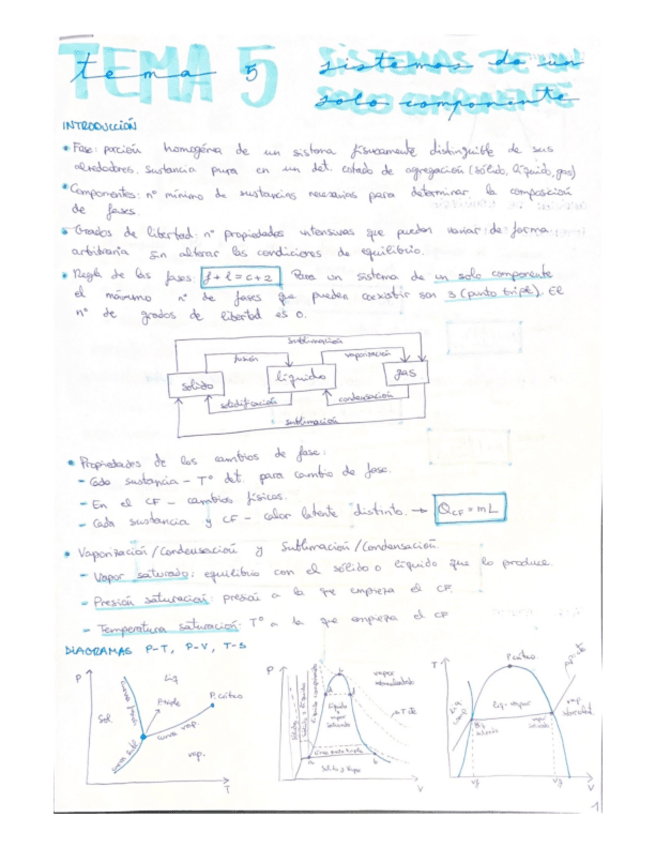 TEMA 5
tema 5 sistemas de un
SISTEMAS DE UN
solo componente
SOLO COMPONENTE
INTRODUCCIÓN
• Fase: porción homogénea de un sistema físicamente distinguible de sus
alrededores. sustancia pura en un det. estado de agregación (sólido, líquido, gas)
• Componentes: nº mínimo de sustancias necesarias para determinar la composición
de fases.
• Grados de libertad: nº propiedades intensivas que pueden variar de forma
arbitraria sin alterar las condiciones de equilibrio.
• Regla de las fases f + l = c + 2 Para un sistema de un solo componente
el máximo nº de fases que pueden coexistir son 3 (punto triple). El
nº de grados de libertad es 0.
sublimación
fusión vaporización
sólido líquido gas
solidificación condensación
sublimación
• Propiedades de los cambios de fase:
- Cada sustancia - Tº det. para cambio de fase.
- En el CF - cambios físicos.
- Cada sustancia y CF - calor latente distinto. → QCF = mL
• Vaporización/Condensación y Sublimación/Condensación.
- Vapor saturado: equilibrio con el sólido o líquido que lo produce.
- Presión saturación: presión a la que empieza el CF.
- Temperatura saturación: Tº a la que empieza el CF
DIAGRAMAS P-T, P-V, T-S
P Sol Liq P.triple P.crítico curva vap. vap. T
curva fusión
curva subl.
P vapor
sobrecalentado
Líquido comprimido
Sólido y líquido
Sólido
Líquido
vapor
saturado
T cte
Línea punto triple
a b
Sólido y vapor
V
T P.crítico
P. cte
liq-vapor
liq
saturado
vapor
saturado
vap
V
1